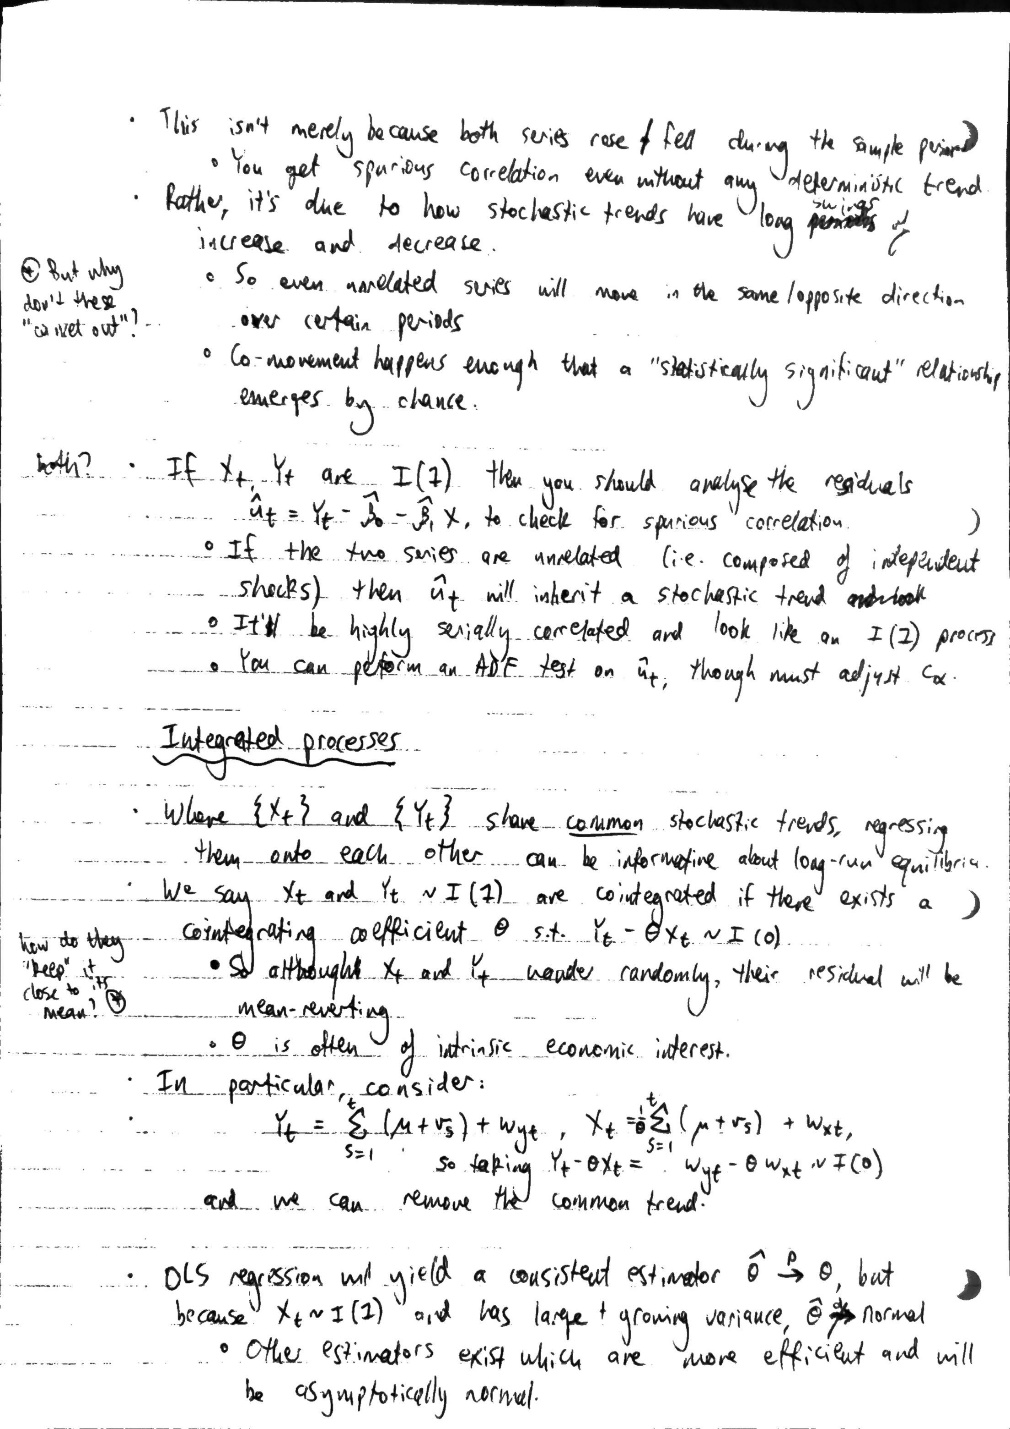 · This isn't merely because both series rose & fell during the sample period
◦ You get spurious correlation even without any deterministic trend
· Rather, it's due to how stochastic trends have long swings of
increase and decrease.
⊛ But why
don't these
"cancel out"?
◦ So even unrelated series will move in the same/opposite direction
over certain periods
◦ Co-movement happens enough that a "statistically significant" relationship
emerges by chance.
both?
· If Xt, Yt are I(1) then you should analyse the residuals
ût = Yt - β̂0 - β̂1 X, to check for spurious correlation
◦ If the two series are unrelated (i.e. composed of independent
shocks) then ût will inherit a stochastic trend
◦ It'll be highly serially correlated and look like an I(1) process
◦ You can perform an ADF test on ût, though must adjust cα.
Integrated processes
· Where {Xt} and {Yt} share common stochastic trends, regressing
them onto each other can be informative about long-run equilibria.
· We say Xt and Yt ~ I(1) are cointegrated if there exists a
cointegrating coefficient θ s.t. Yt - θXt ~ I(0)
how do they
"keep" it
close to its
mean? ⊛
• So although Xt and Yt wander randomly, their residual will be
mean-reverting
◦ θ is often of intrinsic economic interest.
· In particular, consider:
· Yt = Σ_{s=1}^{t} (μ + vs) + wyt, Xt = 1/θ Σ_{s=1}^{t} (μ + vs) + wxt,
so taking Yt - θXt = wyt - θwxt ~ I(0)
and we can remove the common trend.
· OLS regression will yield a consistent estimator θ̂ →p θ, but
because Xt ~ I(1) and has large + growing variance, θ̂ ↛d normal
◦ Other estimators exist which are more efficient and will
be asymptotically normal.